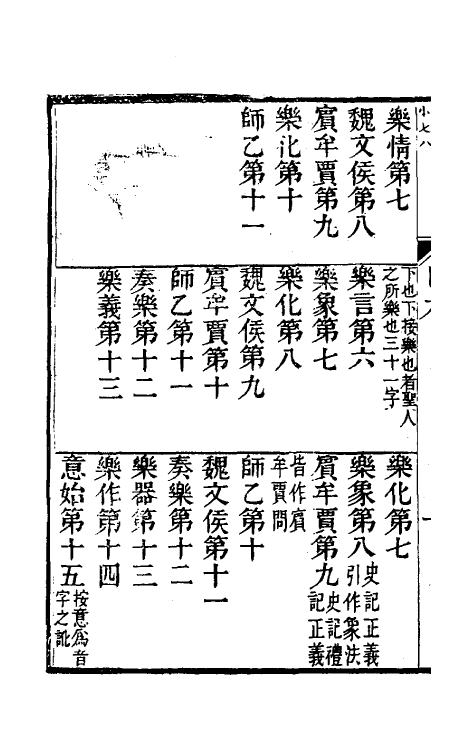 樂情第七
魏文侯第八
賓牟賈第九
樂化第十
師乙第十一
下也下按樂也者聖人
之所樂也三十一字
樂言第六
樂象第七
樂化第八
魏文侯第九
賓牟賈第十
師乙第十一
奏樂第十二
樂義第十三
樂化第七
樂象第八史記正義
引作象法
賓牟賈第九史記禮
記正義
皆作賓
牟賈問
師乙第十
魏文侯第十一
奏樂第十二
樂器第十三
樂作第十四
意始第十五按意為音
字之訛